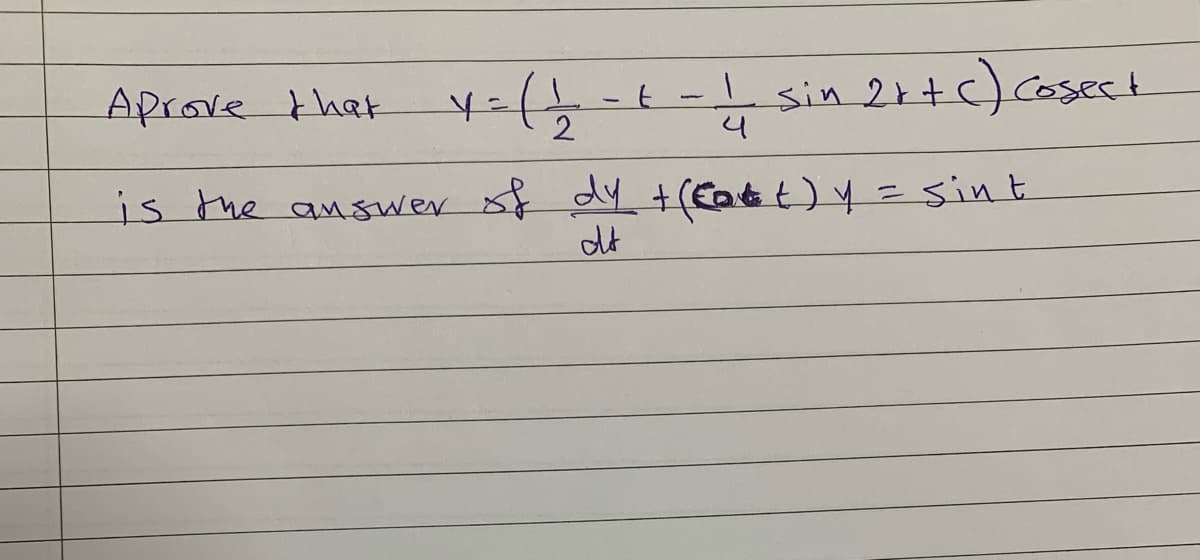 Aprove that y = (1/2 - t - 1/4 sin 2t + c) cosec t
is the answer of dy/dt + (cot t) y = sin t